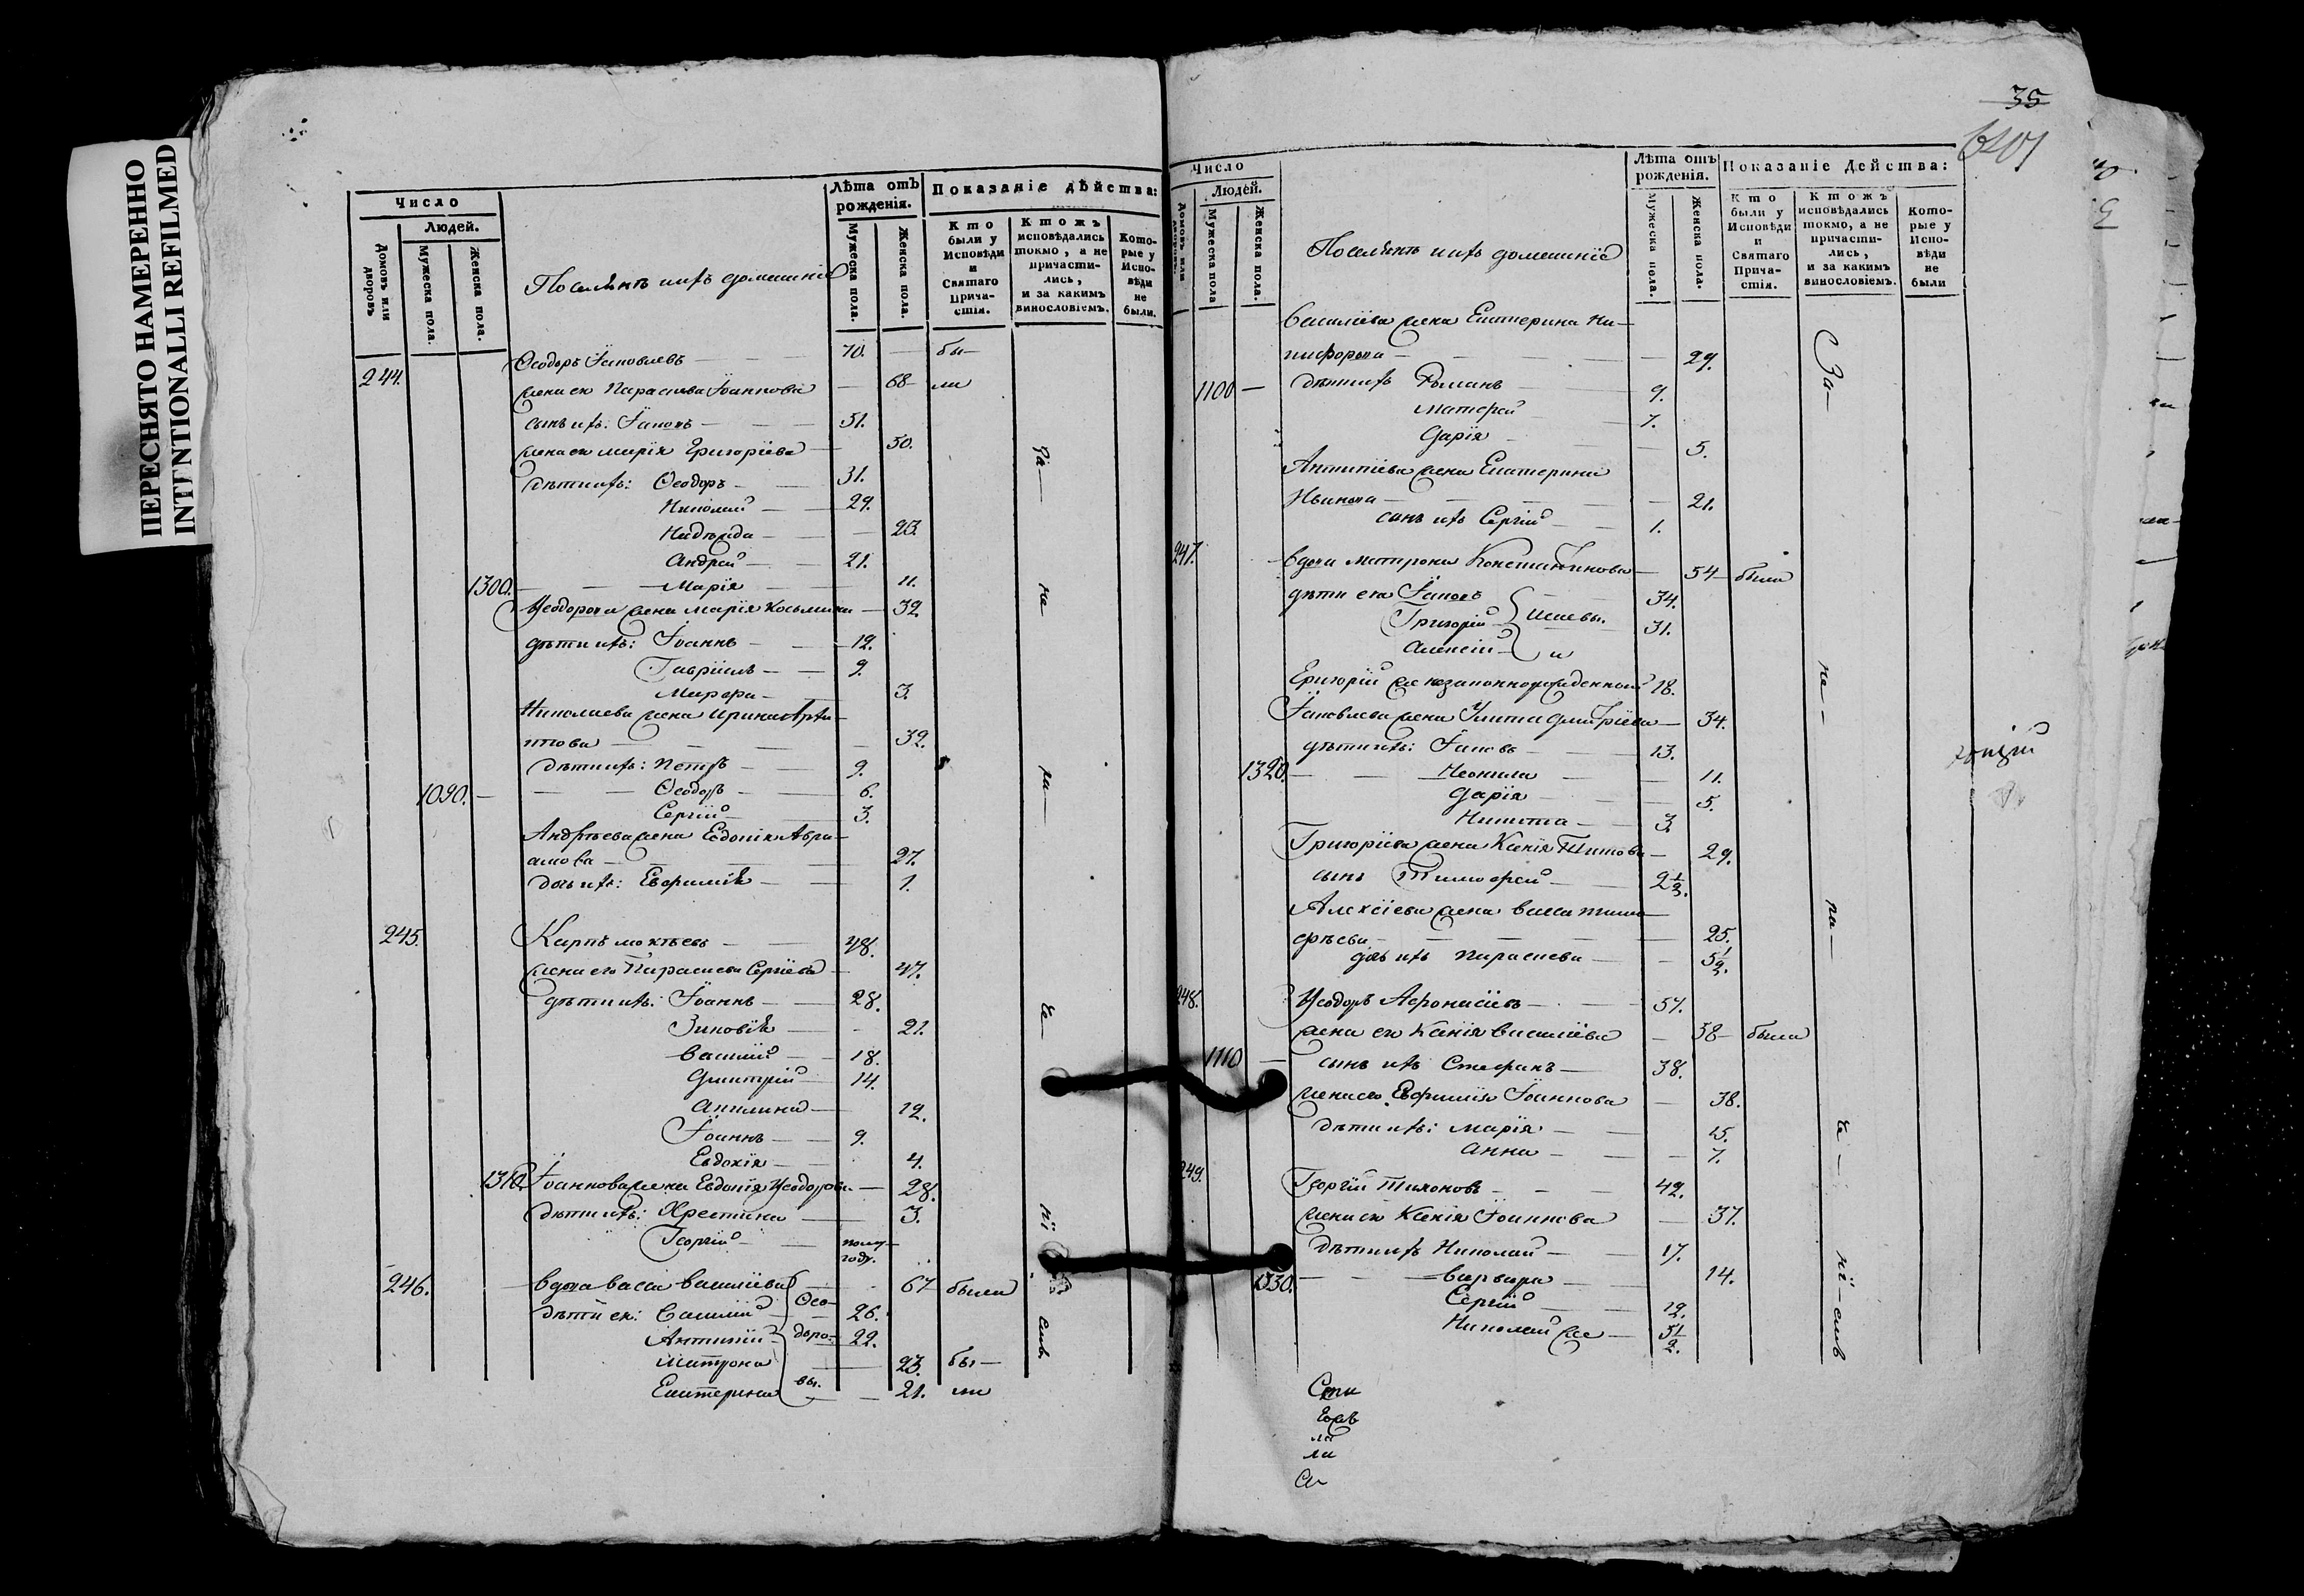 ПЕРЕСНЯТО НАМЕРЕННО
INTENTIONALLI REFILMED
Число
Людей.
Домовъ или дворовъ
Мужеска пола.
Женска пола.
Поселянѣ ихъ домашніе
Лѣта отъ рожденія.
Мужеска пола.
Женска пола.
Показаніе дѣйства:
Кто были у Исповѣди и Святаго Прича-стія.
Ктожъ исповѣдались токмо, а не причасти-лись, и за какимъ винословіемъ.
Кото-рые у Испо-вѣди не были.
244. Ѳеодоръ Іаковлевъ 70. бы-
жена ег Параскева Іоаннова 68 ли
сынъ ихъ: Іаковъ 51.
жена ег Марія Григоріева 50.
дѣти ихъ: Ѳеодоръ 31.
Николай 29.
Надежда 23.
Андрей 21.
1300. Марія 11.
Ѳеодорова жена Марія Косьмина 32
дѣти ихъ: Іоаннъ 12.
Гавріилъ 9.
Марфа 3.
Николаева жена Ирина
32.
дѣти ихъ: Петръ 9.
1090. Ѳеодоръ 6.
Сергій 3.
Андрѣева жена Евдокія Авра-
амова 27.
дочь ихъ: Евфимія 1.
245. Карпъ 48.
жена его Параскева Сергіева 47.
дѣти ихъ: Іоаннъ 28.
Зиновія 21.
Василій 18.
Дмитрій 14.
Акилина 12.
Іоаннъ 9.
Евдокія 4.
1310. Іоаннова жена Евдокія Ѳеодорова 28.
дѣти ихъ: Христина 3.
Георгій полу-
году.
246. вдова Васса Василіева 67 была
дѣти ея: Василій Ѳео- 26.
Антипій доро- 22.
Матрона 23. бы-
Екатерина вы. 21. ли
За-
не
ра-
че-
ні
емъ
35
Число
Людей.
Домовъ или дворовъ.
Мужеска пола
Женска пола.
Поселянѣ ихъ домашніе
Лѣта отъ рожденія.
Мужеска пола.
Женска пола.
Показаніе Действа:
Кто были у Исповѣди и Святаго Прича-стія.
Ктожъ исповѣдались токмо, а не причасти-лись, и за какимъ винословіемъ.
Кото-рые у Испо-вѣди не были
Василіева жена Екатерина Ни-
кифорова 29.
1100 дѣти ихъ Романъ 9.
Матфей 7.
Дарія 5.
Антипіева жена Екатерина
21.
сынъ ихъ Сергій 1.
247. вдова Матрона Константинова 54 была
дѣти ея Іаковъ 34.
Григорій Исаевы. 31.
Алексій и
Григорій же незаконнорожденный 18.
Іаковлева жена Улита Дмитріева 34.
дѣти ихъ: Іаковъ 13.
1320. Неонила 11.
Дарія 5.
Никита 3.
Григоріева жена Ксенія Титова 29.
сынъ Тимофей 2 1/2.
Алексіева жена Васса Тимо-
фѣева 25.
дочь ихъ Параскева 5 1/2.
248. Ѳеодоръ Афонасіевъ 57.
жена ег Ксенія Василіева 58 была
1110 сынъ ихъ Стефанъ 38.
жена его Евфимія Іоаннова 38.
дѣти ихъ: Марія 15.
Анна 7.
249. Георгій Тихоновъ 42.
жена ег Ксенія Іоаннова 37.
дѣти ихъ Николай 17.
1330. Варвара 14.
Сергій 12.
Николай же 5 1/2.
За-
не-
ра-
че-
ні-емъ